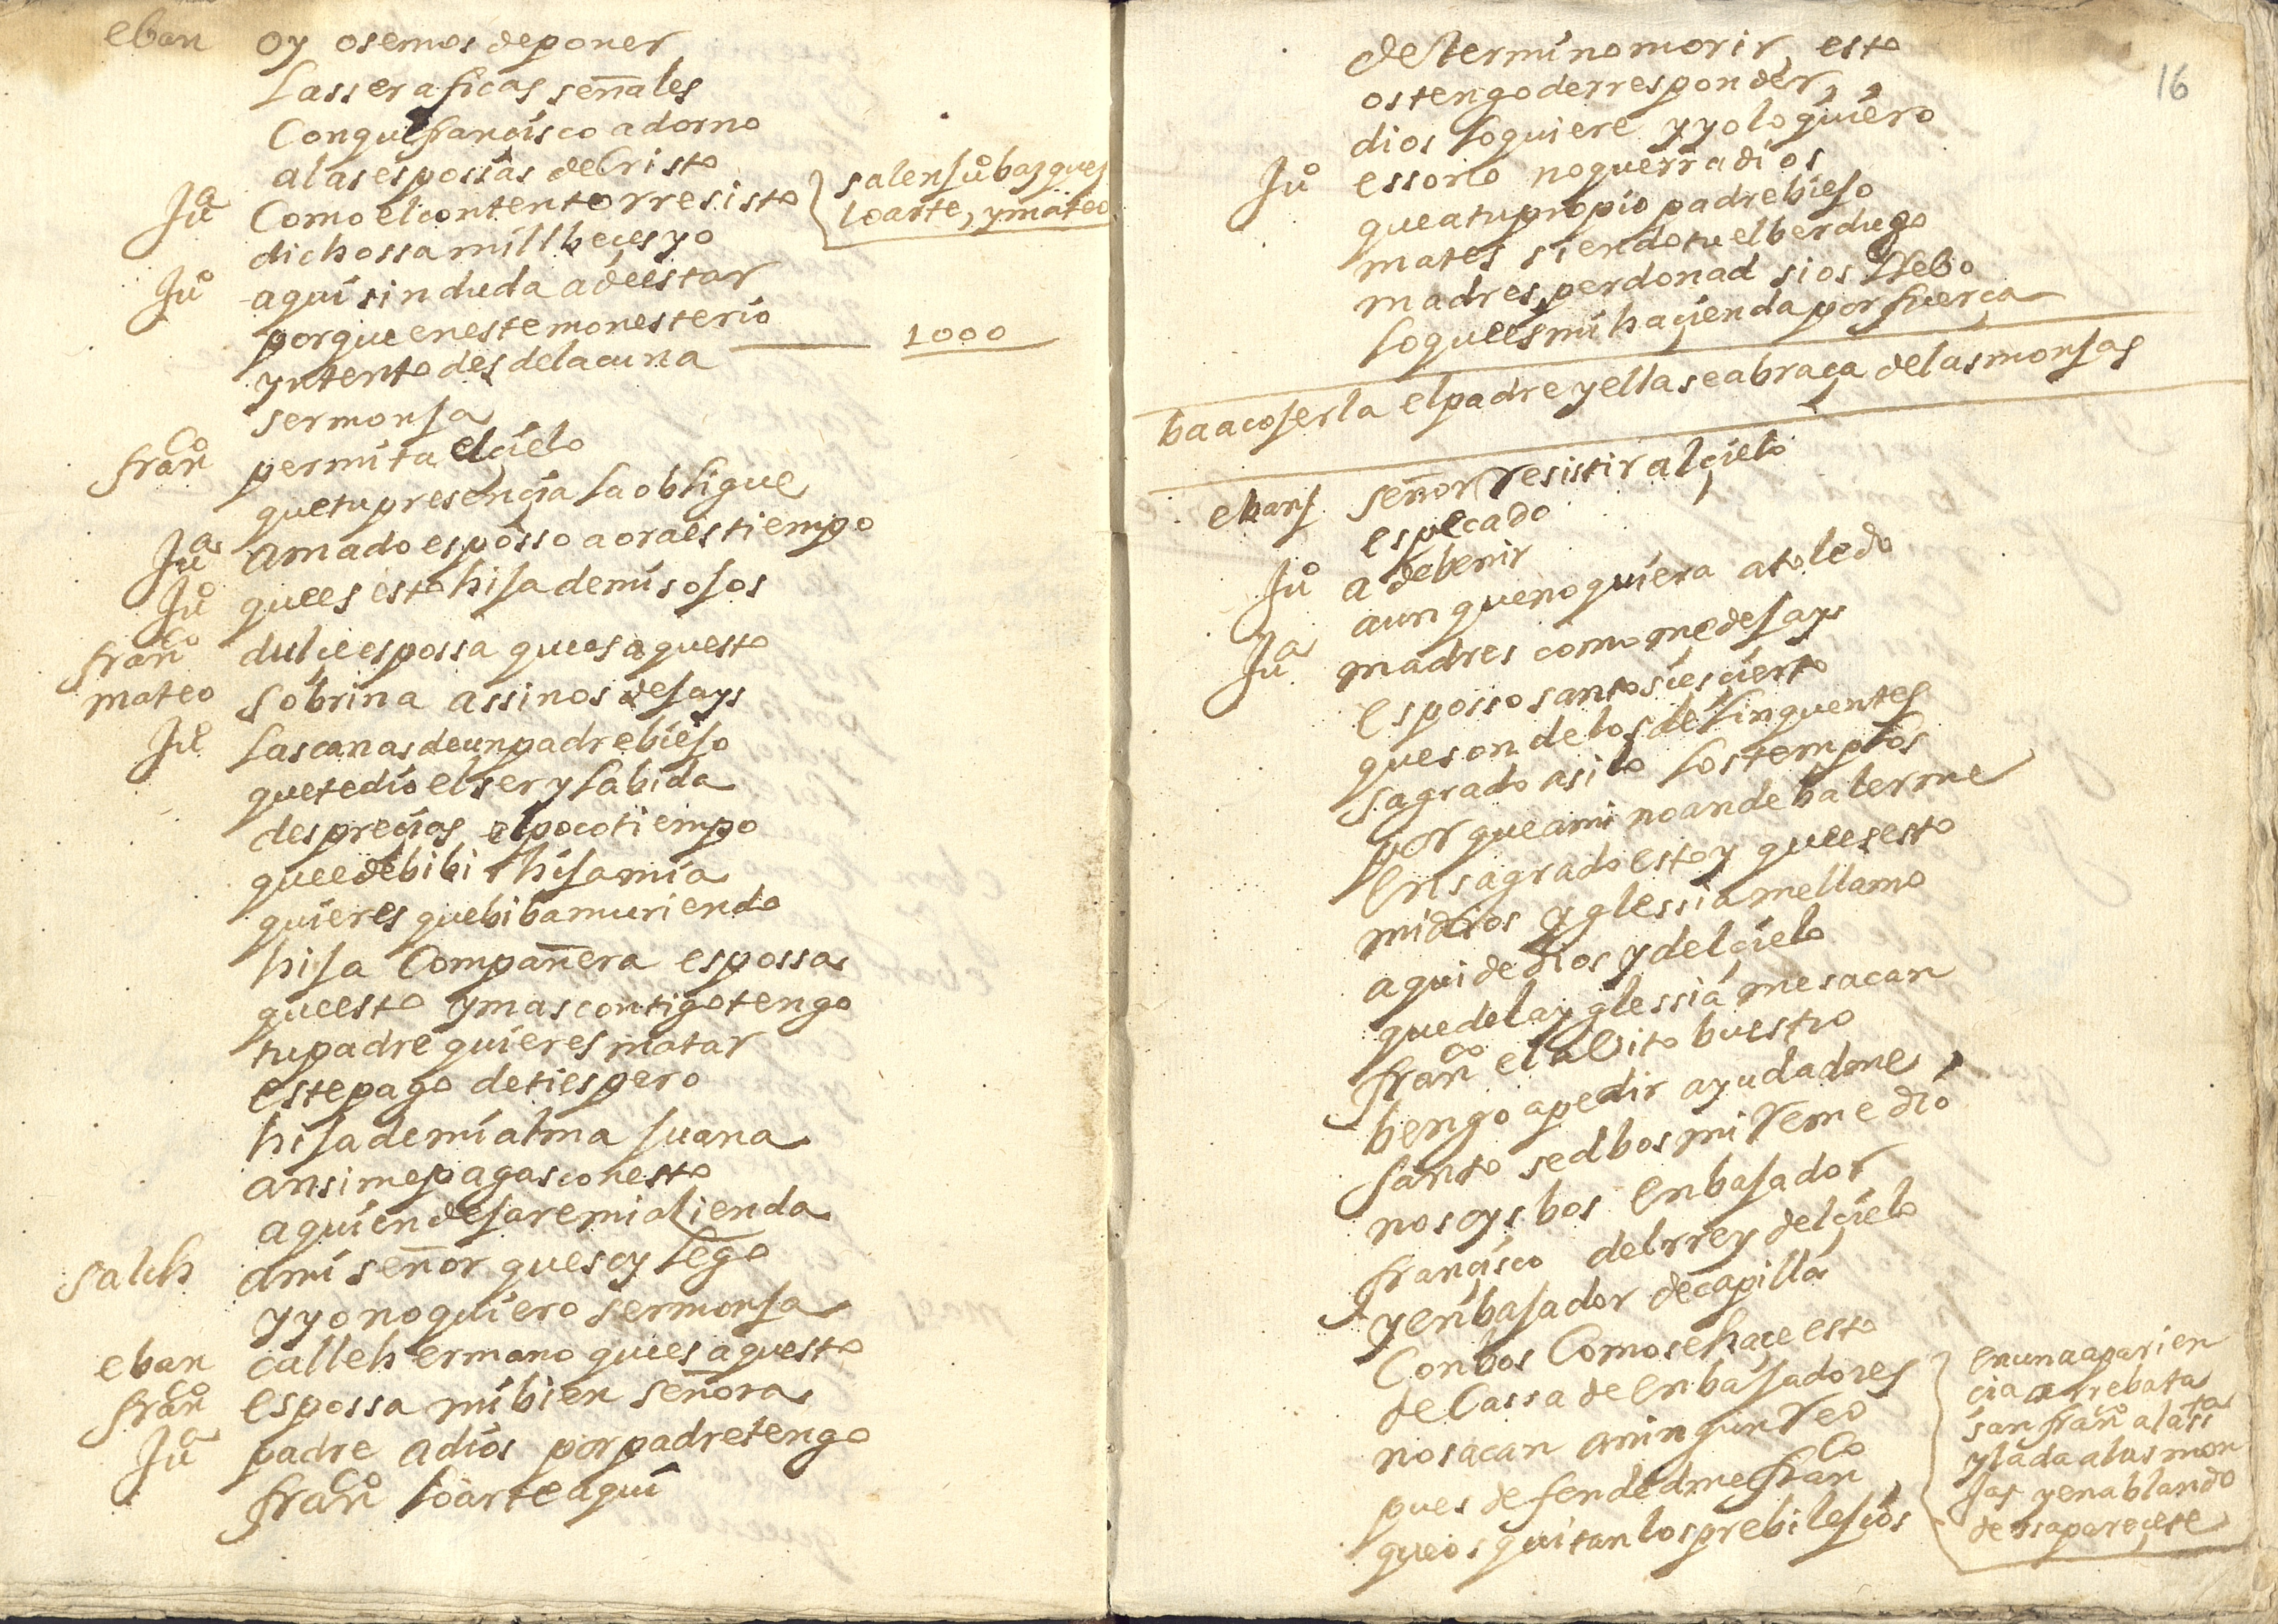 eban oy osemos deponer
Lasseraficas señales
Conque franÇisco adorno
alasespossas deCristo
Juª Como elcontentorresisto
salen Juº bazquez
loarte, ymateo
dichossa mill beçes yo
Juº aqui sin duda adeestar
porque enestemonesterio
1000
yntento desdelacuna
sermonja
franco permita elçielo
quetupresençia laobligue
Juª amado espôsso aoraestiempo
Juº quees esto hija demis ojos
franco dulçeespossa quees aquesto
mateo sobrina assinos dejays
Juº Lascanas deunpadrebiejo
quetedio elser y labida
despreçias elpocotiempo
queedebibir hijamia
quieres quebibamuriendo
hija Compañera espossa
queesto ymascontigotengo
tupadre quieres matar
estepago detiespero
hijademialma Juana
ansimepagasconesto
aquiendejaremiaÇienda
salch ami señor quesoy lego
yyonoquiero sermonja
eban calleh ermano quees aquesto
franco espossa mibien señora
Juª padre adios porpadretengo
franco loarteaqui
16
determinomorir esto
ostengoderresponder,
dios loquiere yyoloquiero
Juº essono noquerradios
queatupropio padrebiejo
mates siendotuelberdugo
madres perdonad sios llebo
loqueesmihaçienda porfuerça
baacojerla elpadre yellaseabraça delasmonjas
ebanj señor Resistir alçielo
especado
Juº adebenir
aunquenoquiera atoledo
Juª madres comomedejays
espossosantosiesçierto
queson delosdelinquentes
sagrado asilo lostemplos
porqueami noandebalerme
Ensagradoestoy queesesto
midios yglessiamellamo
aqui dedios ydelçielo
quedelayglessia mesacan
franco elabito buestro
bengo apedir ayudadme,
santo sedbosmi Remedio
nosoys bos Enbajador
françisco delrrey delçielo
yenbajador decapilla
Conbos Comosehaçeesto
deCassa deEnbajadores
nosacan aningun Reo
pues defendedmefranco
queos quitanlosprebilejios
Enunaaparien
cia arrebata
san franco alassta
yladaalasmon
jas yenablando
dessapareçese